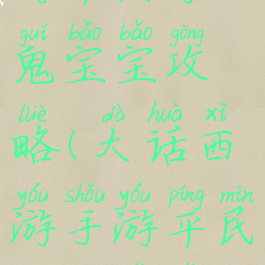 guǐ bǎo bǎo gōng
鬼宝宝攻
lüè dà huà xī
略(大话西
yóu shǒu yóu píng mín
游手游平民